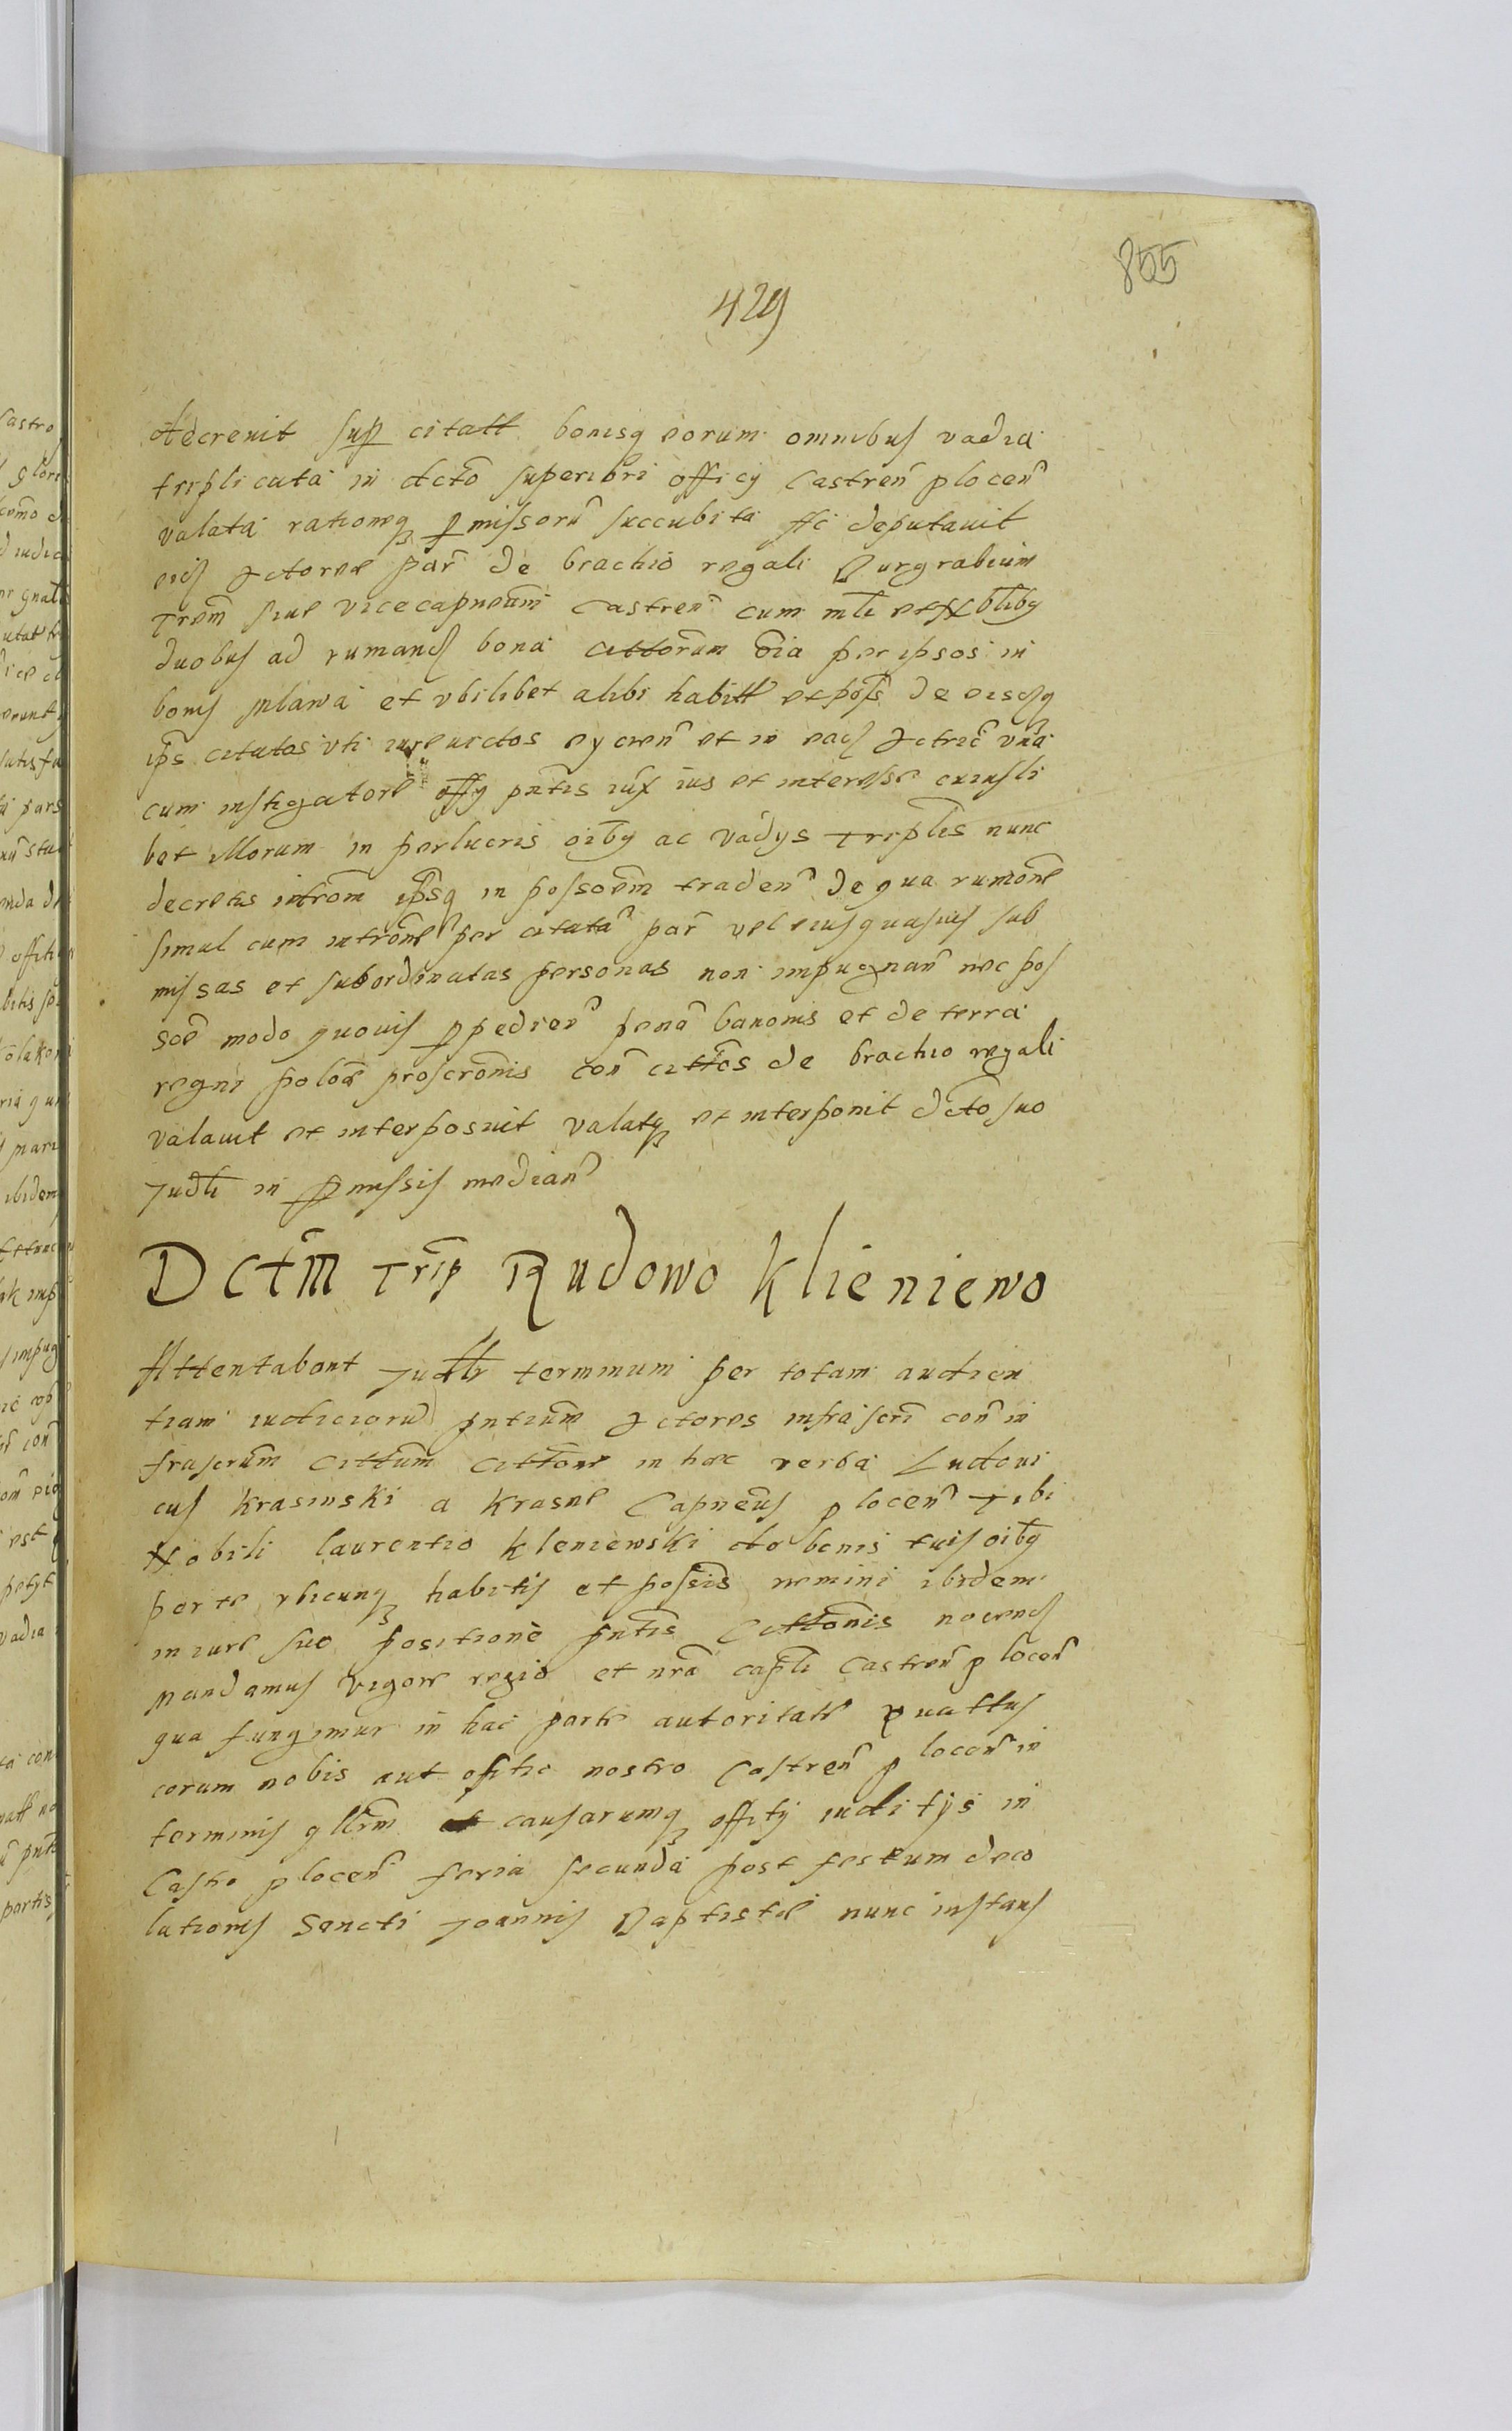 855
429
Adcrevit sup citatt bonisq eorum omnibus vadia
triplicata in dcto superiori officy Castren plocen
valata rationeq pmissoru succubita Ac deputavit
eid Actoree par de brachio regali Burgrabium
Trem sive vicecapneum Castren cum mli et Nbliby
duobus ad rumand bona cittorum oia per ipsos in
bonis Mlawa et vbilibet alibi habitt et poss de eisdq
ips citatos vti iure victos eycien et in ead Actric vna
cum instigatore offy pntis iux ius et interesse cuiusli
bet illorum in perlucris oiby ac vadys triplis nunc
decretis introm ipsq in possoem traden de qua rumone
simul cum introne per citata par vel eiusquavis sub
missas et subordinatas personas non impugnan nec pos
soe modo quovis ppedien pena banonis et de terra
regni poloe proscronis con cittos de brachio regali
valavit et interposuit valatq et interponit dcto suo
Judli in pmissis median
Dctm Trip Rudowo Klieniewo
Attentabant Judlr terminum per totam audien
tiam iudiciorum pntium Actores infrascri con in
frascrum cittum cittone in haec verba Ludovi
cus Krasinski a Krasne Capneus plocen Tibi
Nobili laurentio kleniewski de bonis tuis oiby
per te vbicunq habitis et possis nemini ibidem
in iure suo positione pntis Cittonis nocend
Mandamus vigore regio et nra capli Castren plocen
qua fungimur in hac parte autoritate quattus
coram nobis aut offitio nostro Castren plocen in
terminis qllrm causarumq offity iuditijs in
Castro plocen feria secunda post festum deco
lationis Sancti Joannis Baptistae nunc instans